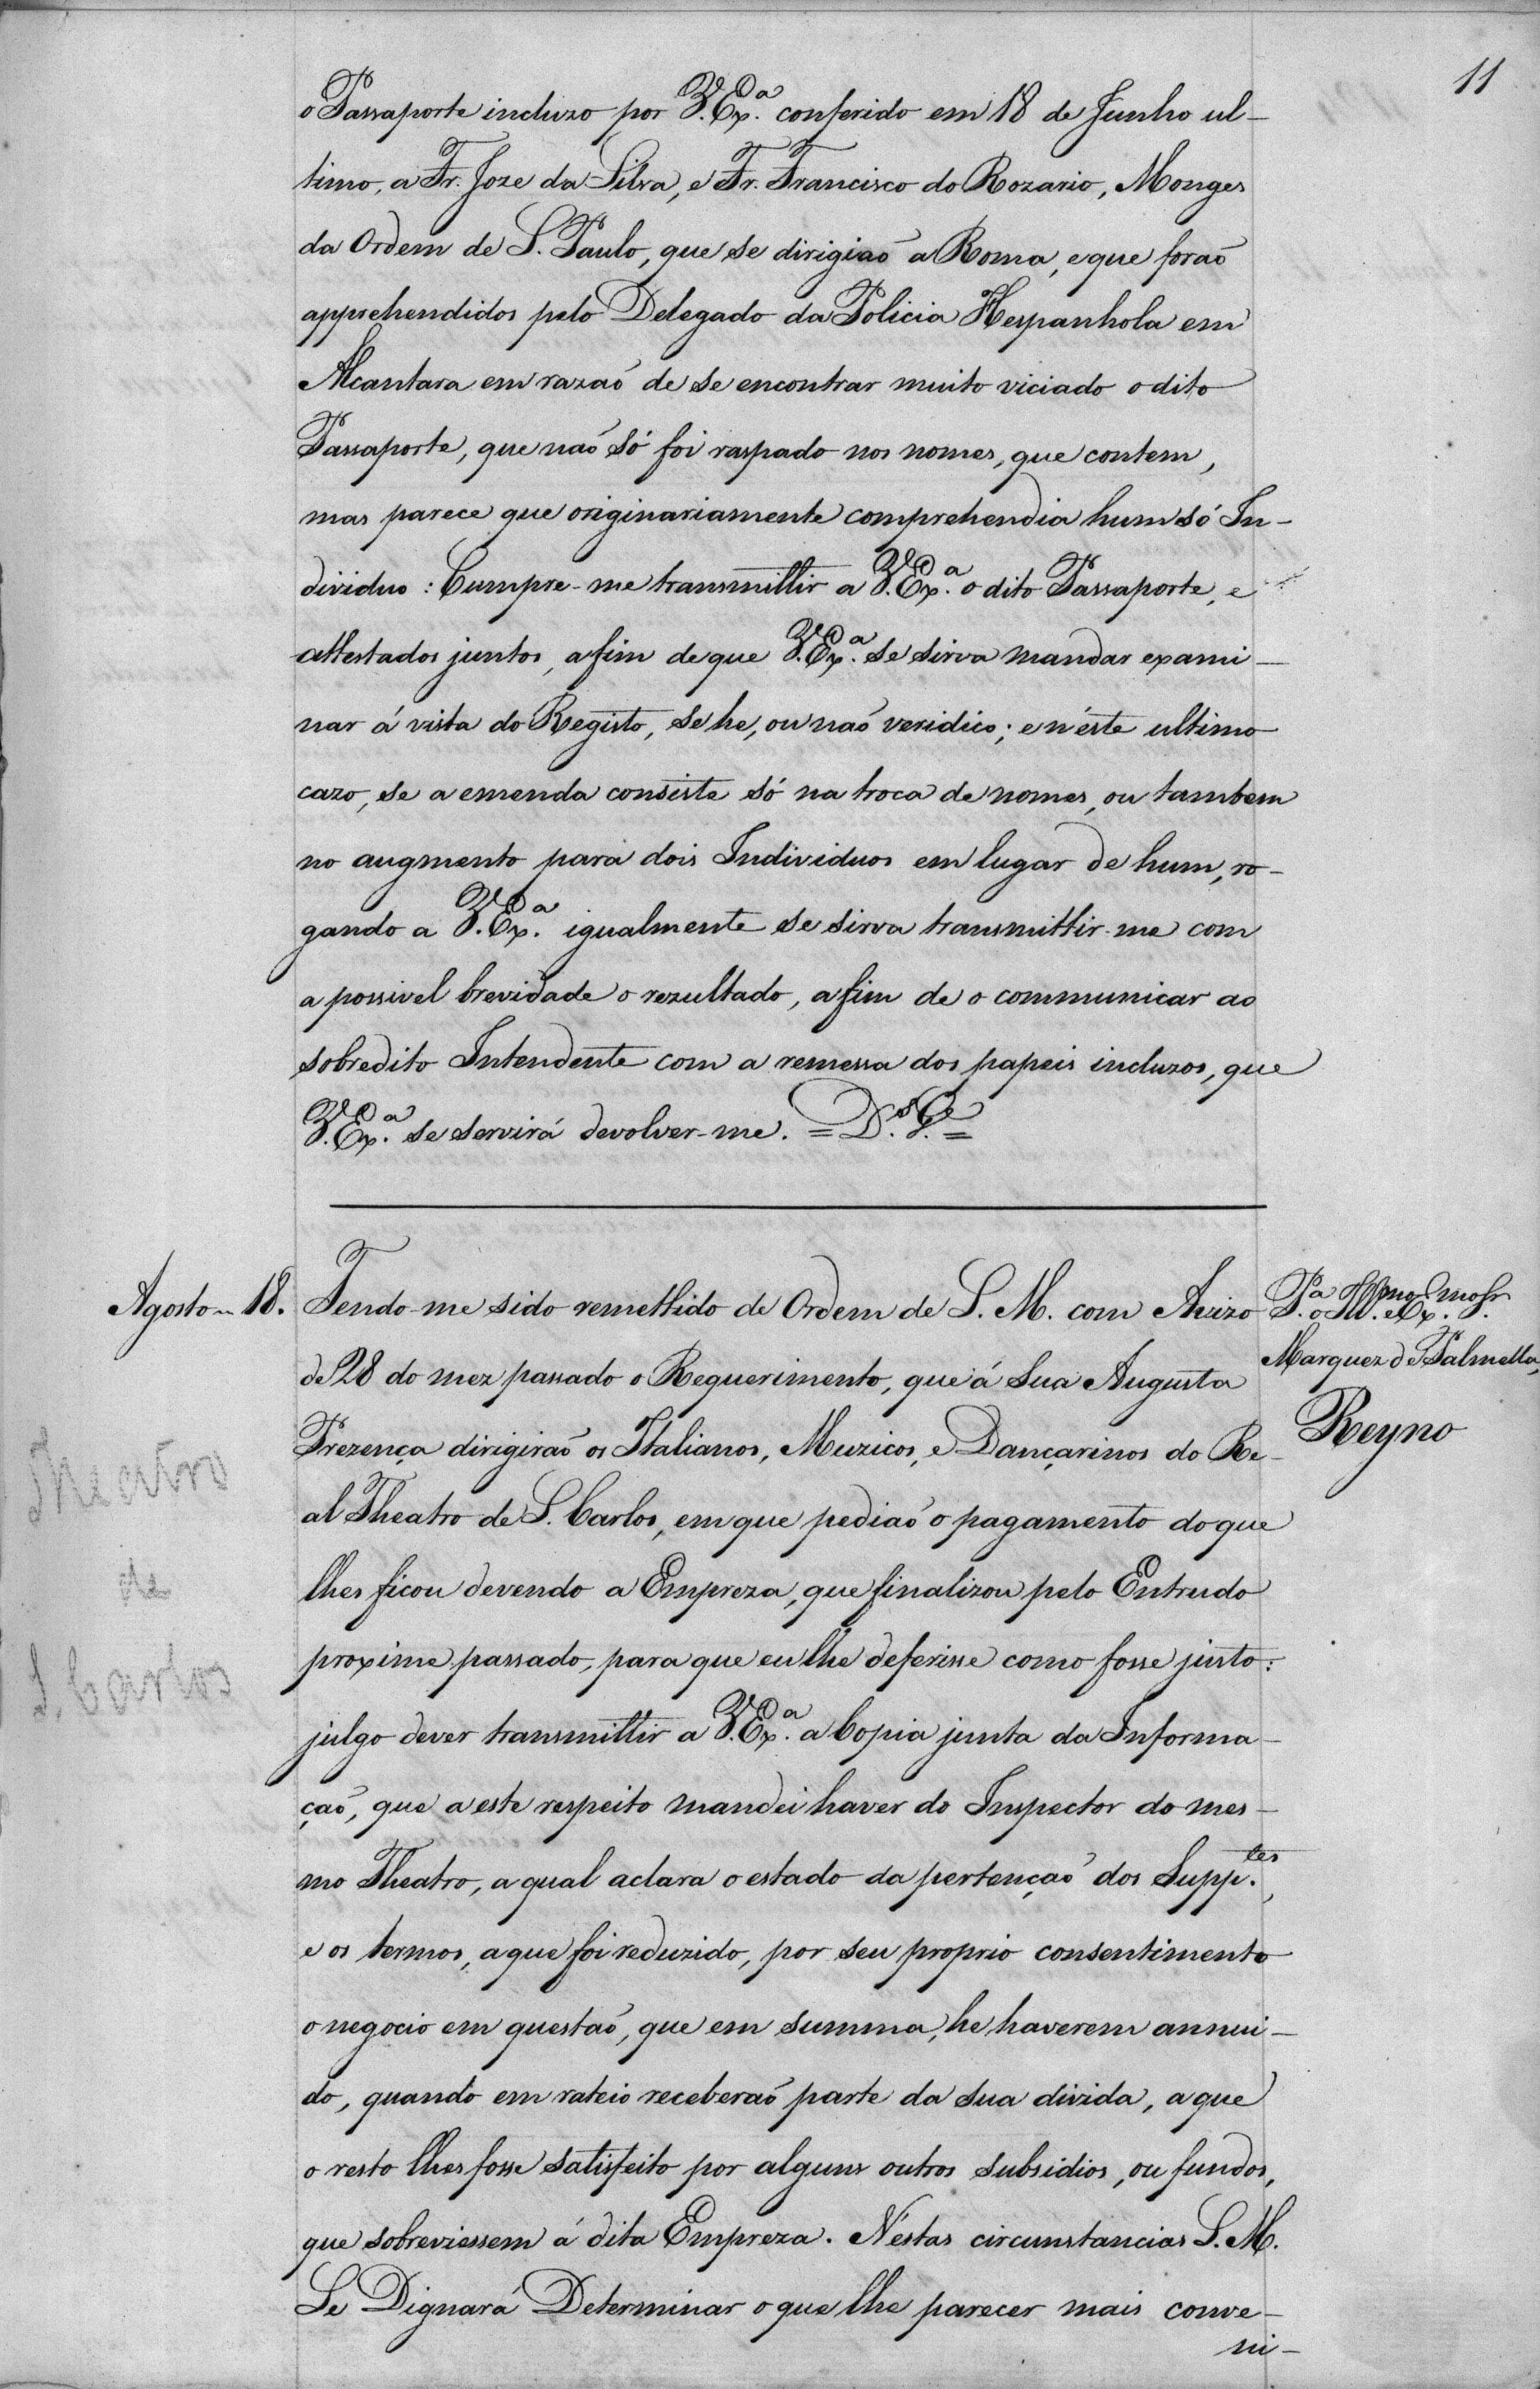 11
o Passaporte incluzo por V. Ex.ª conferido em 18 de Junho ul-
timo, a Fr. Joze da Silva, e Fr. Francisco do Rozario, Monges
da Ordem de S. Paulo, que se dirigiaõ a Roma, e que foraõ
apprehendidos pelo Delegado da Policia Hespanhola em
Alcantara em razaõ de se encontrar muito viciado o dito
Passaporte, que naõ só foi raspado nos nomes, que contem,
mas parece que originariamente comprehendia hum só In-
dividuo: Cumpre-me transmittir a V. Ex.ª o dito Passaporte, e
attestados juntos, a fim de que V. Ex.ª se sirva mandar exami-
nar á vista do Registo, se he, ou naõ veridico; e n'éste ultimo
cazo, se a emenda consiste só na troca de nomes, ou tambem
no augmento para dois Individuos em lugar de hum, ro-
gando a V. Ex.ª igualmente se sirva transmittir-me com
a possivel brevidade o rezultado, a fim de o communicar ao
sobredito Intendente com a remessa dos papeis incluzos, que
V. Ex.ª se servirá devolver-me. = D.s G.e =
Agosto 18. Tendo-me sido remettido de Ordem de S. M. com Avizo
P.ª o Ill.mo e Ex.mo Sr.
Marquez de Palmella,
Reyno
de 28 do mez passado o Requerimento, que á Sua Augusta
Prezença dirigiraõ os Italianos, Muzicos, e Dançarinos do Re-
al Theatro de S. Carlos, em que pediaõ o pagamento do que
lhes ficou devendo a Empreza, que finalizou pelo Entrudo
proxime passado, para que eu lhe deferisse como fosse justo:
julgo dever transmittir a V. Ex.ª a Copia junta da Informa-
çaõ, que a este respeito mandei haver do Inspector do mes-
mo Theatro, a qual aclara o estado da pertençaõ dos Supp.tes,
e os termos, a que foi reduzido, por seu proprio consentimento
o negocio em questaõ, que em summa, he haverem annui-
do, quando em rateio receberaõ parte da sua divida, a que
o resto lhes fosse satisfeito por alguns outros subsidios, ou fundos,
que sobreviessem á dita Empreza. N'éstas circumstancias S. M.
Se Dignará Determinar o que lhe parecer mais conve-
ni-
Theatro
de
S. Carlos